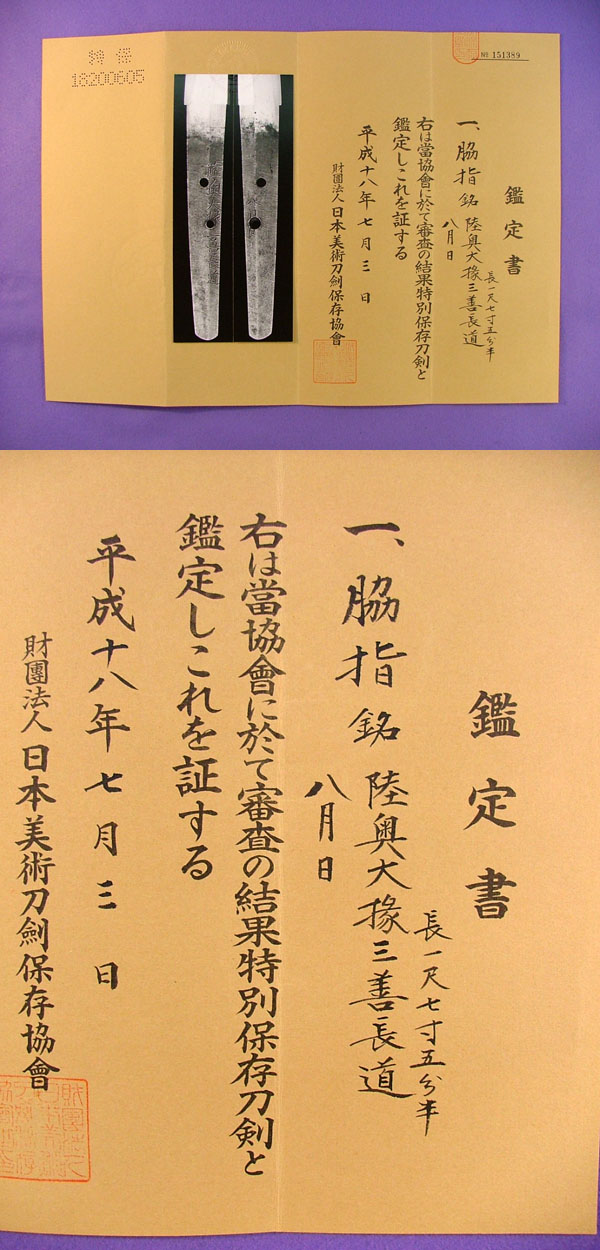 特保
18200605
№ 151389
鑑定書
一、脇指 銘 陸奥大掾三善長道
長一尺七寸五分半
八月日
右は當協會に於て審査の結果特別保存刀剣と
鑑定しこれを証する
平成十八年七月三日
財團法人日本美術刀劍保存協會
鑑定書
一、脇指 銘 陸奥大掾三善長道
長一尺七寸五分半
八月日
右は當協會に於て審査の結果特別保存刀剣と
鑑定しこれを証する
平成十八年七月三日
財團法人日本美術刀劍保存協會